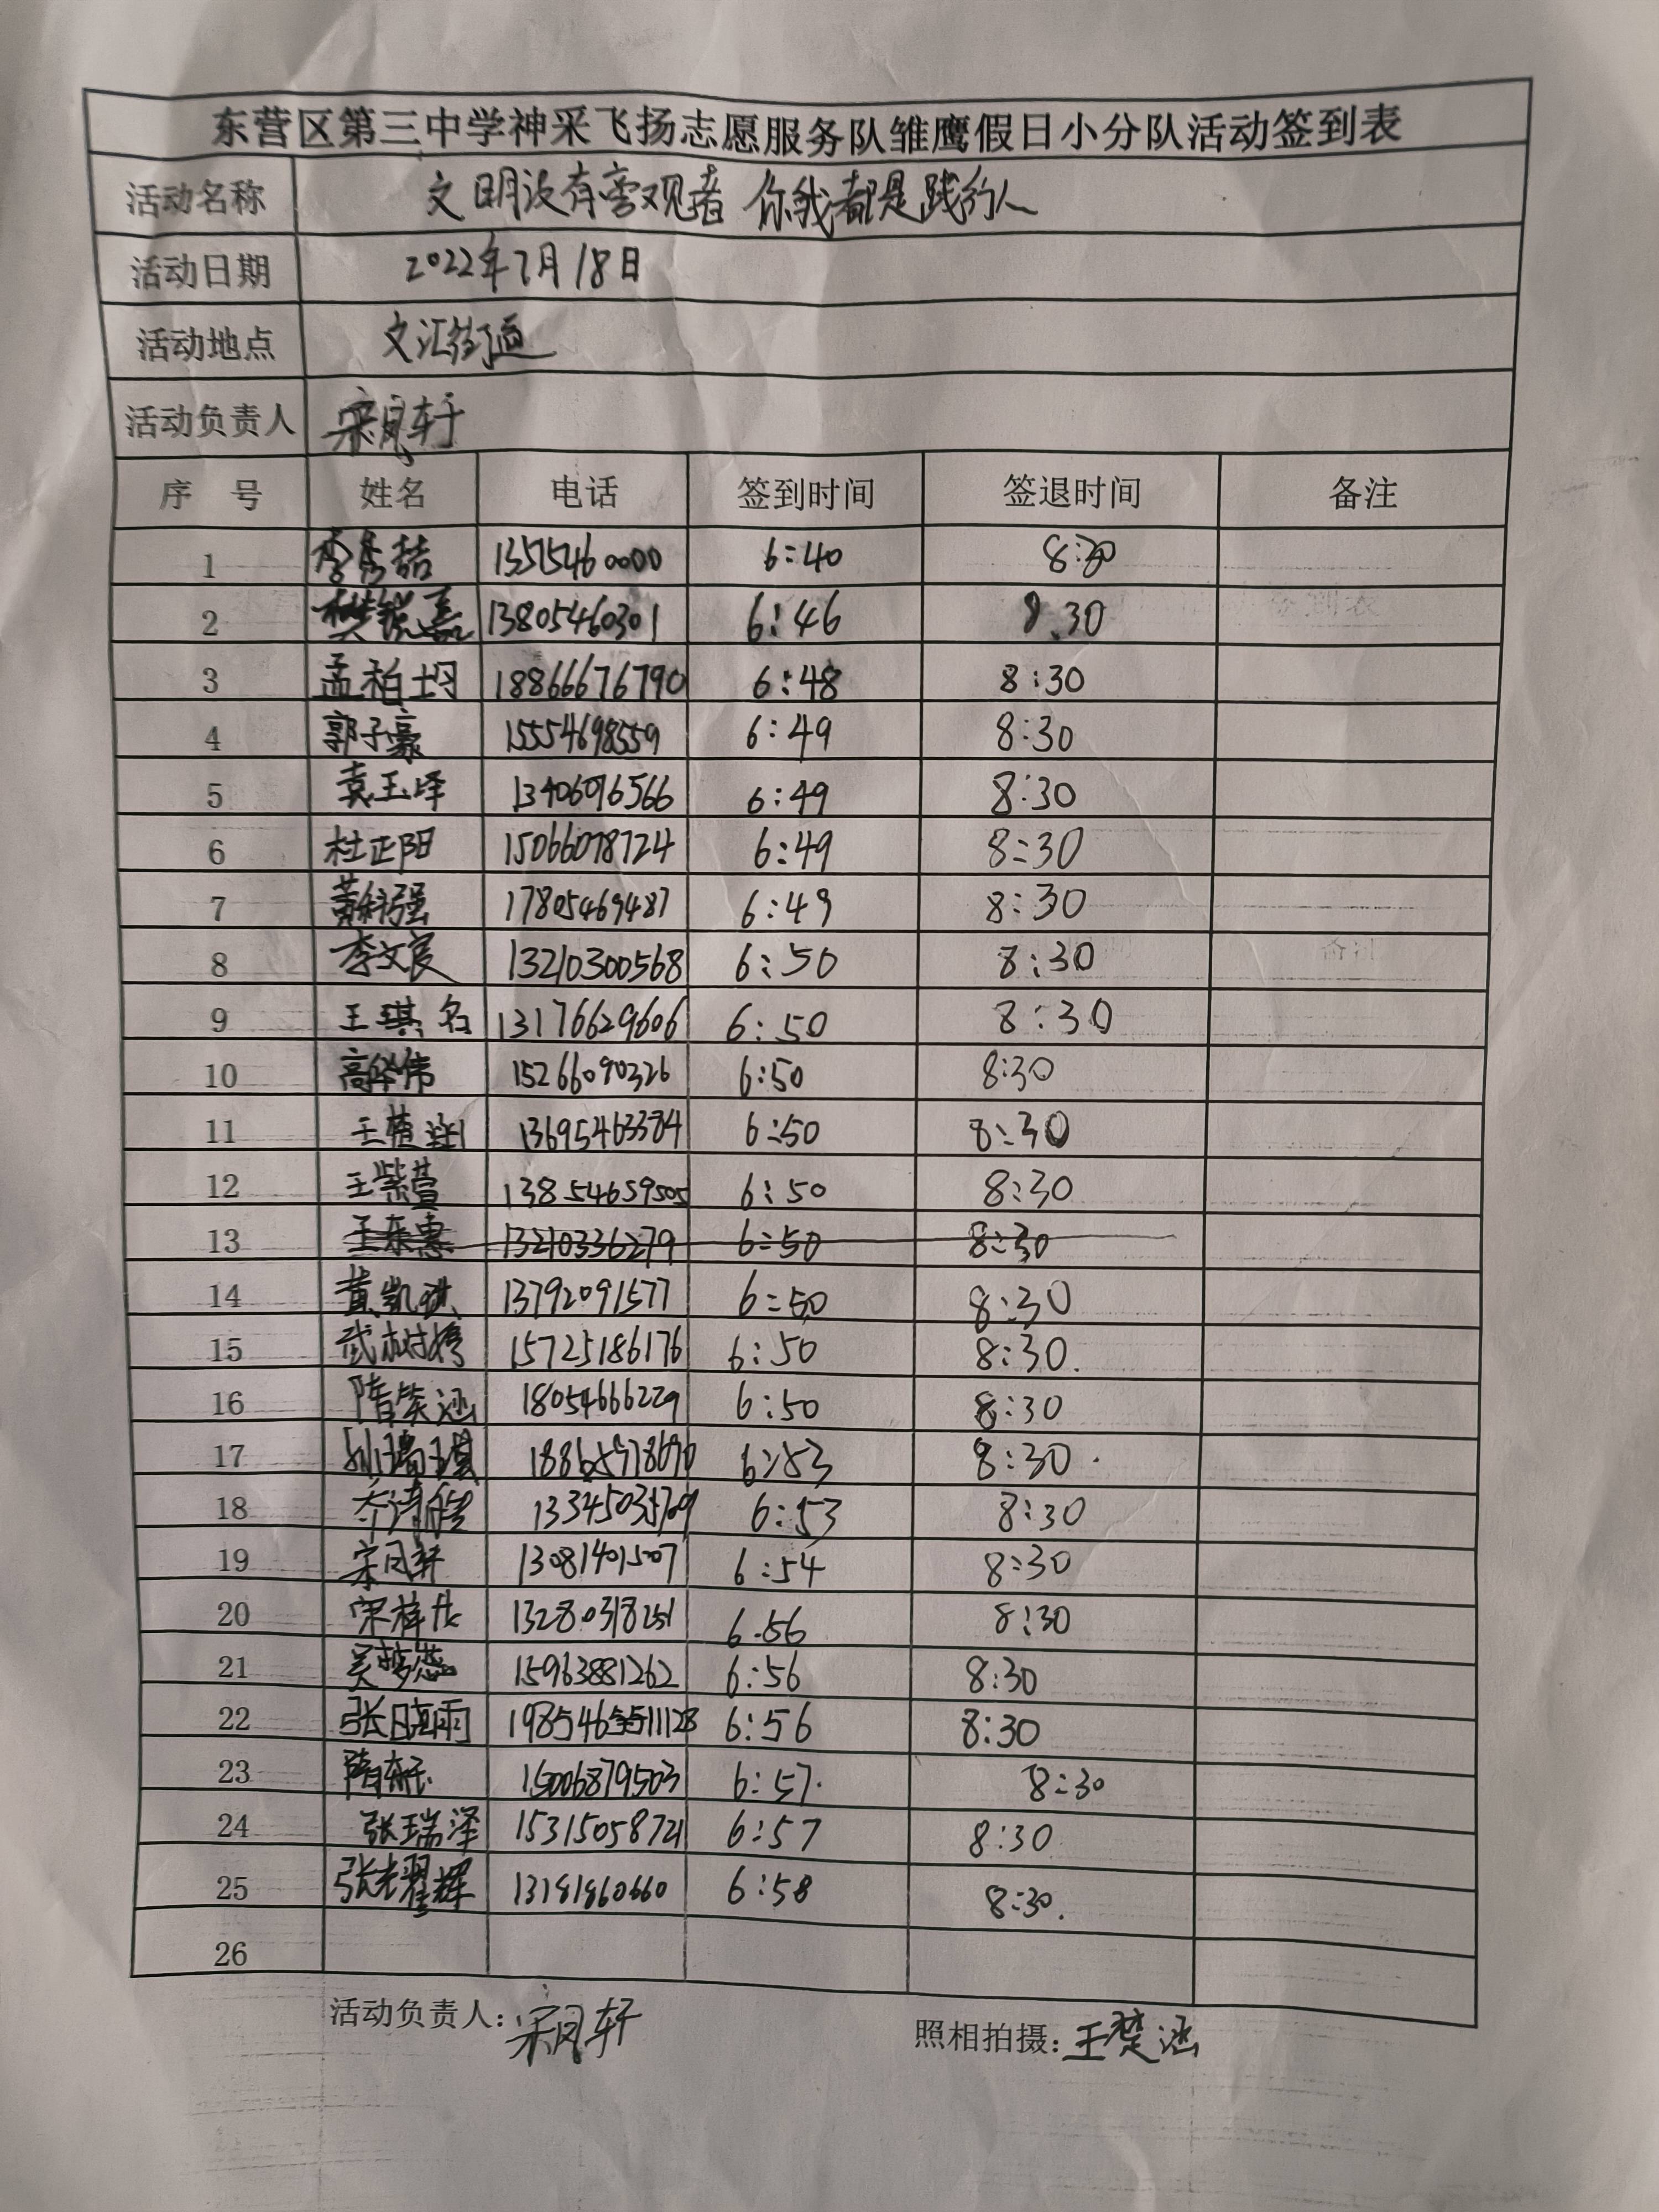 东营区第三中学神采飞扬志愿服务队雏鹰假日小分队活动签到表
活动名称 文明没有旁观者 你我都是践行人
活动日期 2022年7月18日
活动地点 文汇街道
活动负责人 宋凤轩
序 号 姓名 电话 签到时间 签退时间 备注
1 李喆 6:40 8:30
2 樊锐嘉 13805460301 6:46 8.30
3 孟柏均 18866676790 6:48 8:30
4 郭子豪 15554698559 6:49 8:30
5 袁玉泽 13406096566 6:49 8:30
6 杜正阳 15066078724 6:49 8:30
7 黄强 17805469487 6:49 8:30
8 李文良 13210300568 6:50 8:30
9 王琪名 13176629606 6:50 8:30
10 高华伟 15266090326 6:50 8:30
11 王 13695463384 6:50 8:30
12 王紫萱 13854659505 6:50 8:30
13 王东惠 13210336279 6:50 8:30
14 黄凯琪 13792091577 6:50 8:30
15 武树婷 15725186176 6:50 8:30.
16 隋笑涵 18054666229 6:50 8:30
17 孙瑞琪 6:53 8:30.
18 6:53 8:30
19 宋凤轩 13081401507 6:54 8:30
20 宋梓 13280318251 6.56 8:30
21 吴梦蕊 15963881262 6:56 8:30
22 张晓雨 6:56 8:30
23 隋 15006879503 6:57. 8:30
24 张瑞泽 15315058721 6:57 8:30
25 张耀辉 13181860660 6:58 8:30.
26
活动负责人：宋凤轩 照相拍摄：王楚涵